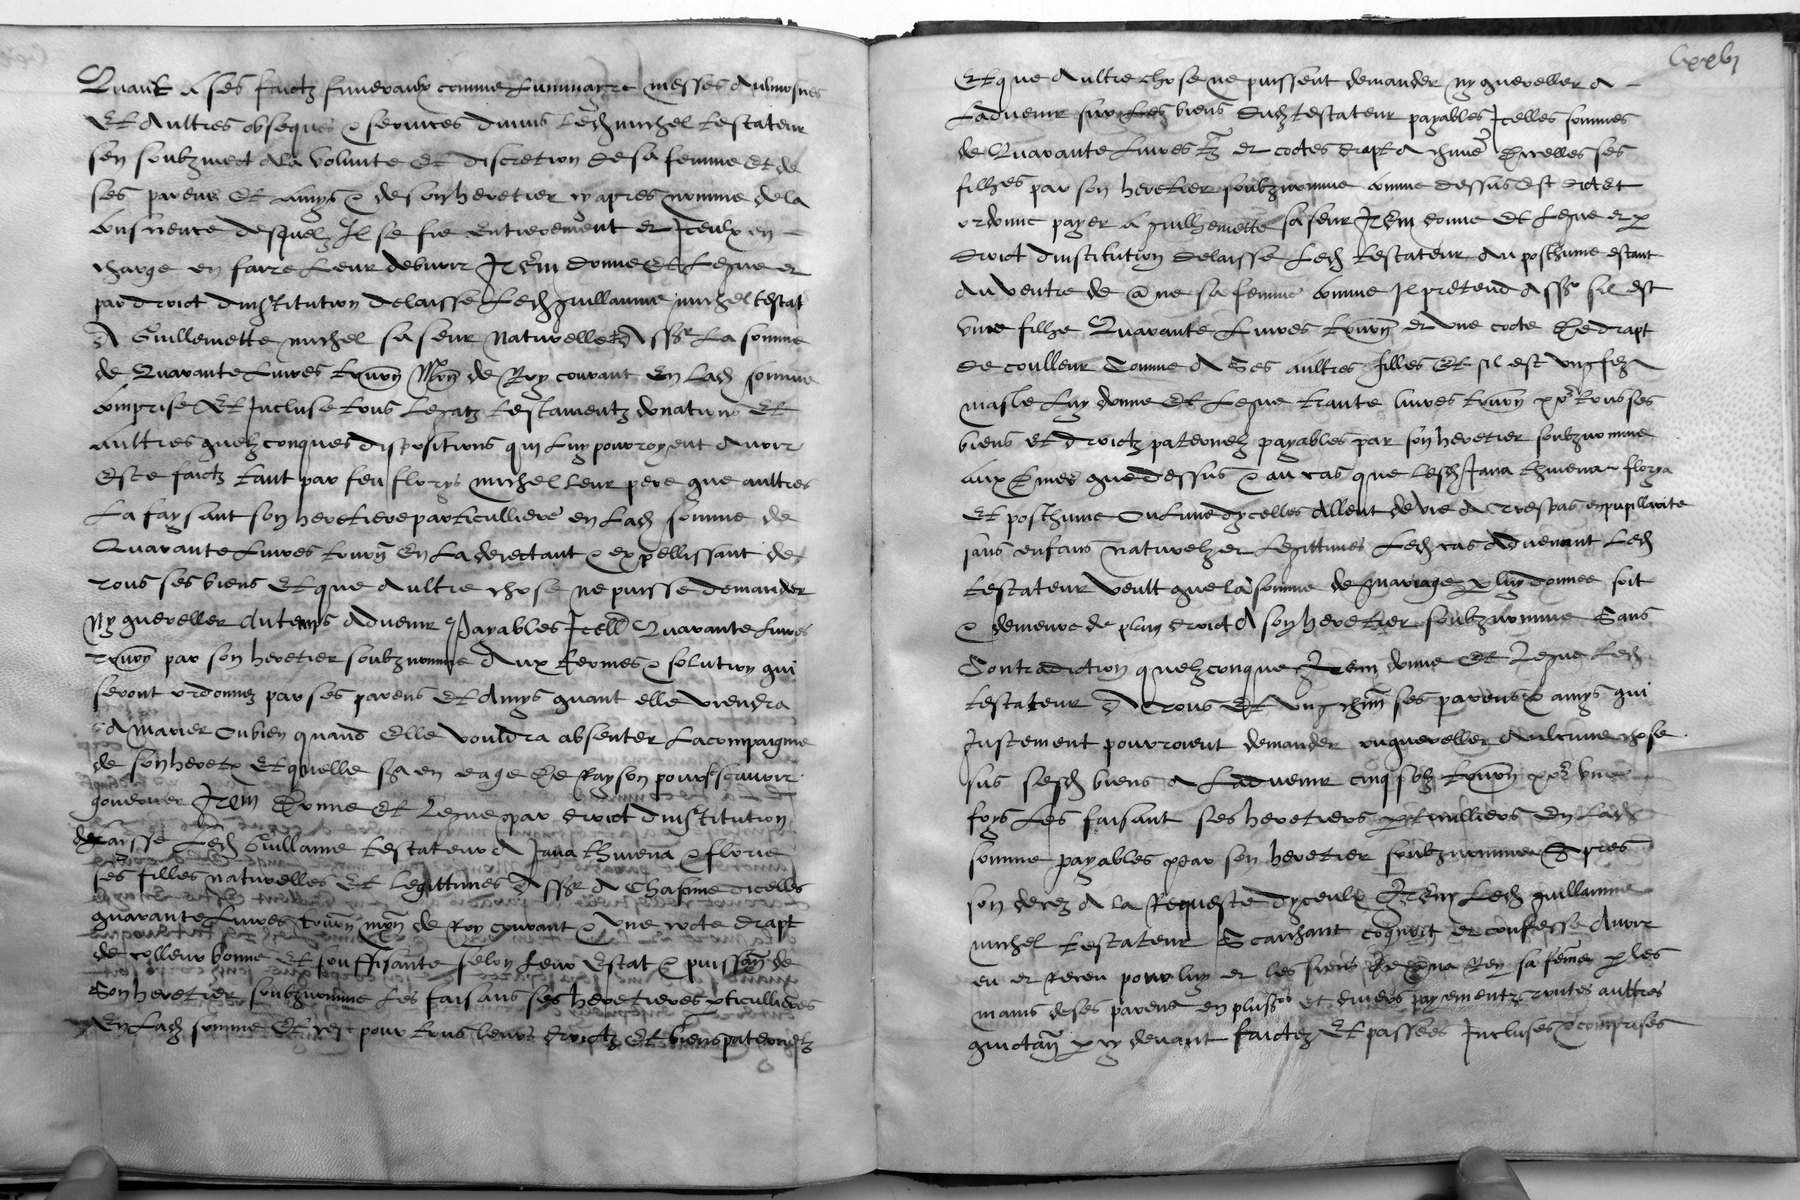 Quant a ses faictz funeraulx comme lumynayre messes aulmosnes
Et aultres obseques & services divins led michel testateur
sen soubzmect a la volunte et discretion de sa femme et de
ses parens et amys & de son heretier cy apres nomme de la
consience desquelz Il se fie entierement et Iceulx en
charge en faire leur debuoir Item donne et legue et
par droict dinstitution delaisse led guillaume michel testat
A Guillemette michel sa seur naturelle la somme
de Quarante livres tourn monn de Roy courant En lad somme
comprise Et Incluse tous legatz testamentz donations Et
aultres quelzconques dispositions qui luy pourroyent avoir
Este faictz tant par feu florys michel leur pere que aultres
La faysant son heretiere particulliere en lad somme de
Quarante livres tourn En la deiectant & expellissant de
tous ses biens Et que aultre chose ne puisse demander
Ny quereller au temps advenir Payables Icelles Quarante livres
tourn par son heretier soubznomme Aux termes & solution qui
seront ordonnez par ses parens Et Amys quant elle viendra
a marier Ou bien quand Elle vouldra absenter la compaignie
de son heret Et quelle sera en eage de Rayson pour scavoir
gouverner Item Donne Et Legue par droict dinstitution
delaisse Led Guillame testateur A Jana & florie
ses filles naturelles Et Legittimes A Chascune dicelles
quarante Livres tourn monn de Roy courant & Une cote drapt
de colleur bonne Et souffisante selon leur Estat & puissan de
Son heretier soubznomme Les faisans ses heretieres pticullieres
En Lad somme Et ce pour tous leurs droictz Et biens paternelz
lxxvj
Et que aultre chose ne puissent demander ny quereller a
Ladvenir sur Les biens dud testateur payables Icelles sommes
de Quarante Livres tz et cotes drapt a chune Dicelles ses
filhes par son heretier soubznomme comme dessus Est dict Et
ordonne payer A guilhemette sa seur Item donne Et legue et p
droict dinstitution delaisse Led testateur Au posthume estant
Au ventre de sa femme comme Il pretend sil est
Une filhe Quarante Livres tourn et Une cote De drapt
De coulleur Comme A Ses aultres filles Et sil est ung filz
masle luy donne Et Legue trante livres tourn tous ses
biens et droictz paternelz payables par son heretier soubznomme
Aux que dessus & au cas que lesd Jana florya
Et posthume Ou lune dycelles Allent de vie A trespas en pupillarite
sans enfans naturelz et Legittimes Led cas advenant Led
testateur veult que la somme de mariage p luy donnee soit
& demeure de plain droict A son heretier soubznomme Sans
Contradiction quelzconque Item donne Et Legue Led
testateur A tous Et ung chun ses parens & amys qui
Justement pourroient demander ou quereller Aulcune chose
sus sesd biens A Ladvenir cinq solz tourn une
foys Les faisant ses heretiers pticulliers En Lad
somme payables par son heretier soubznomme Apres
son decez A la Requeste dyceulx Item Led guillaume
michel testateur Scaichant cognoit et confesse Avoir
eu et receu pour luy et les siens De Rey sa feme p les
mains de ses parens en plusrs et divers payementz toutes aultres
quictan p cy devant faictez Et passees Incluses & comprises